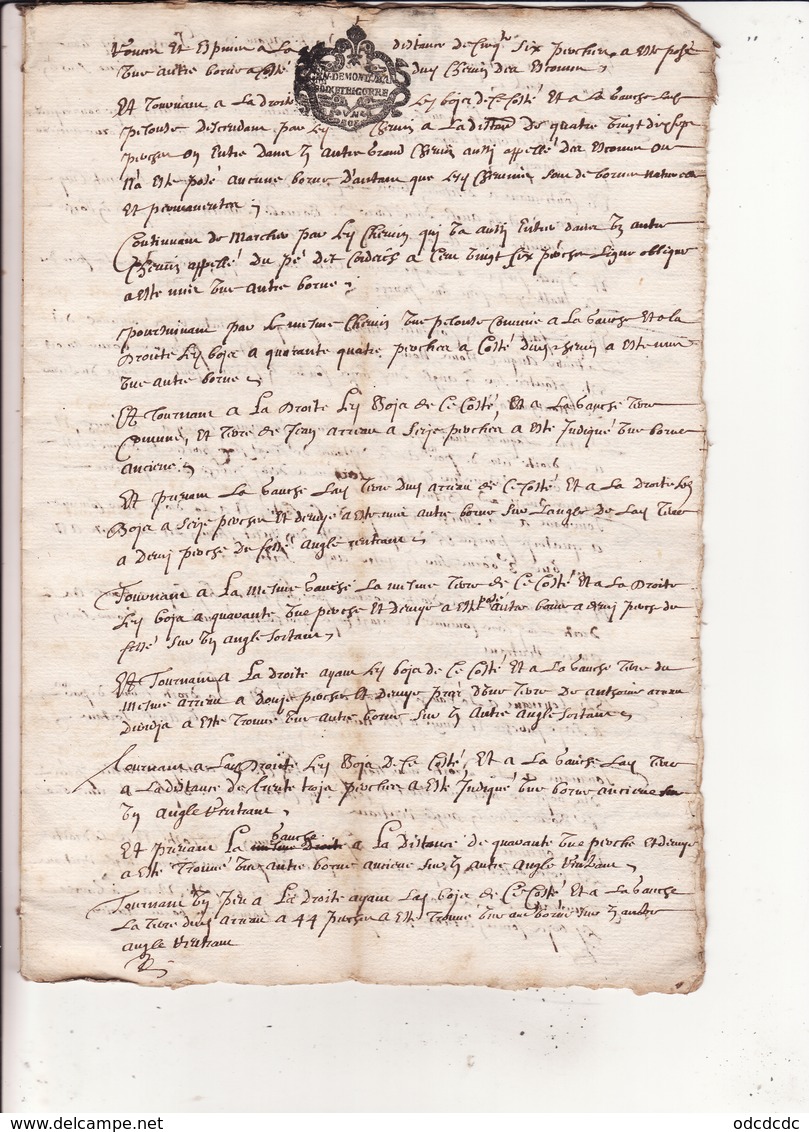 a la distance de Cinq Six perches a esté posé
Vne autre borne a Costé dud Chemin des
GEN·DE·MONTAUBAN
Et Tournam a La droite Led boja de Ce Costé Et a La Gauche Lad
pelouse descendam par Led Chemin a La distance de quatre Vingt dix sept
perches on Entre dans Vn autre Grand Chemin aussi appellé des ou
N'a Esté posé aucune borne D'autam que Led Chemin sont de bornes naturelle
Et permanentes
Continuam de Marcher par Led Chemin qui Va aussi Entrer dans Vn autre
Chemin appellé du pé det a Cent Vingt Six perches Ligne oblique
a Esté mise Vne autre borne
poursuivam par Le mesme Chemin Vne pelouse Commune a La Gauche Et a la
Droitte Led boja a quarante quatre perches a Costé dud Chemin a Esté mise
Vne autre borne
Et Tournam a La Droite Led Boja de Ce Costé, Et a La Gauche Terre
Comune, Et Terre de Jean arreau a Seize perches a Esté Indiqué Vne borne
anciene
Et prenam La Gauche Lad Terre dud arreau de Ce Costé Et a La Droite Led
Boja a Seize perches Et demye a Esté mise autre borne sur L'angle de Lad Terre
a Demy perche de fossé angle rentram
Tournam a La mesme Gauche La mesme Terre de Ce Costé Et a La Droite
Led boja a quarante Vne perche Et demye a Esté posé autre borne a demy perche du
fossé sur Vn angle Sortam
Et Tournam a La droite ayam Led boja de Ce Costé Et a La Gauche Terre du
mesme arreau a douze perches Et demye prez d'Vne Terre de anthoine arreau
a Esté Trouvé Vne autre borne sur Vn autre angle Sortam
Tournam a Lad Droitte Led Boja De Ce Costé, Et a La Gauche Lad Terre
a La distance de trente troja perches a Esté Indiqué Vne borne anciene sur
Vn angle Rentram
Et prenam La Gauche a La Distance de quarante Vne perche Et demye
a Esté Trouvé Vne autre borne anciene sur Vn autre angle Rentram
Tournam Vn peu a La Droite ayam Led boja de Ce Costé Et a La Gauche
La Terre dud arreau a 44 perches a Esté Trouvé Vne autre borne sur Vn autre
angle Rentram
odcdcdc